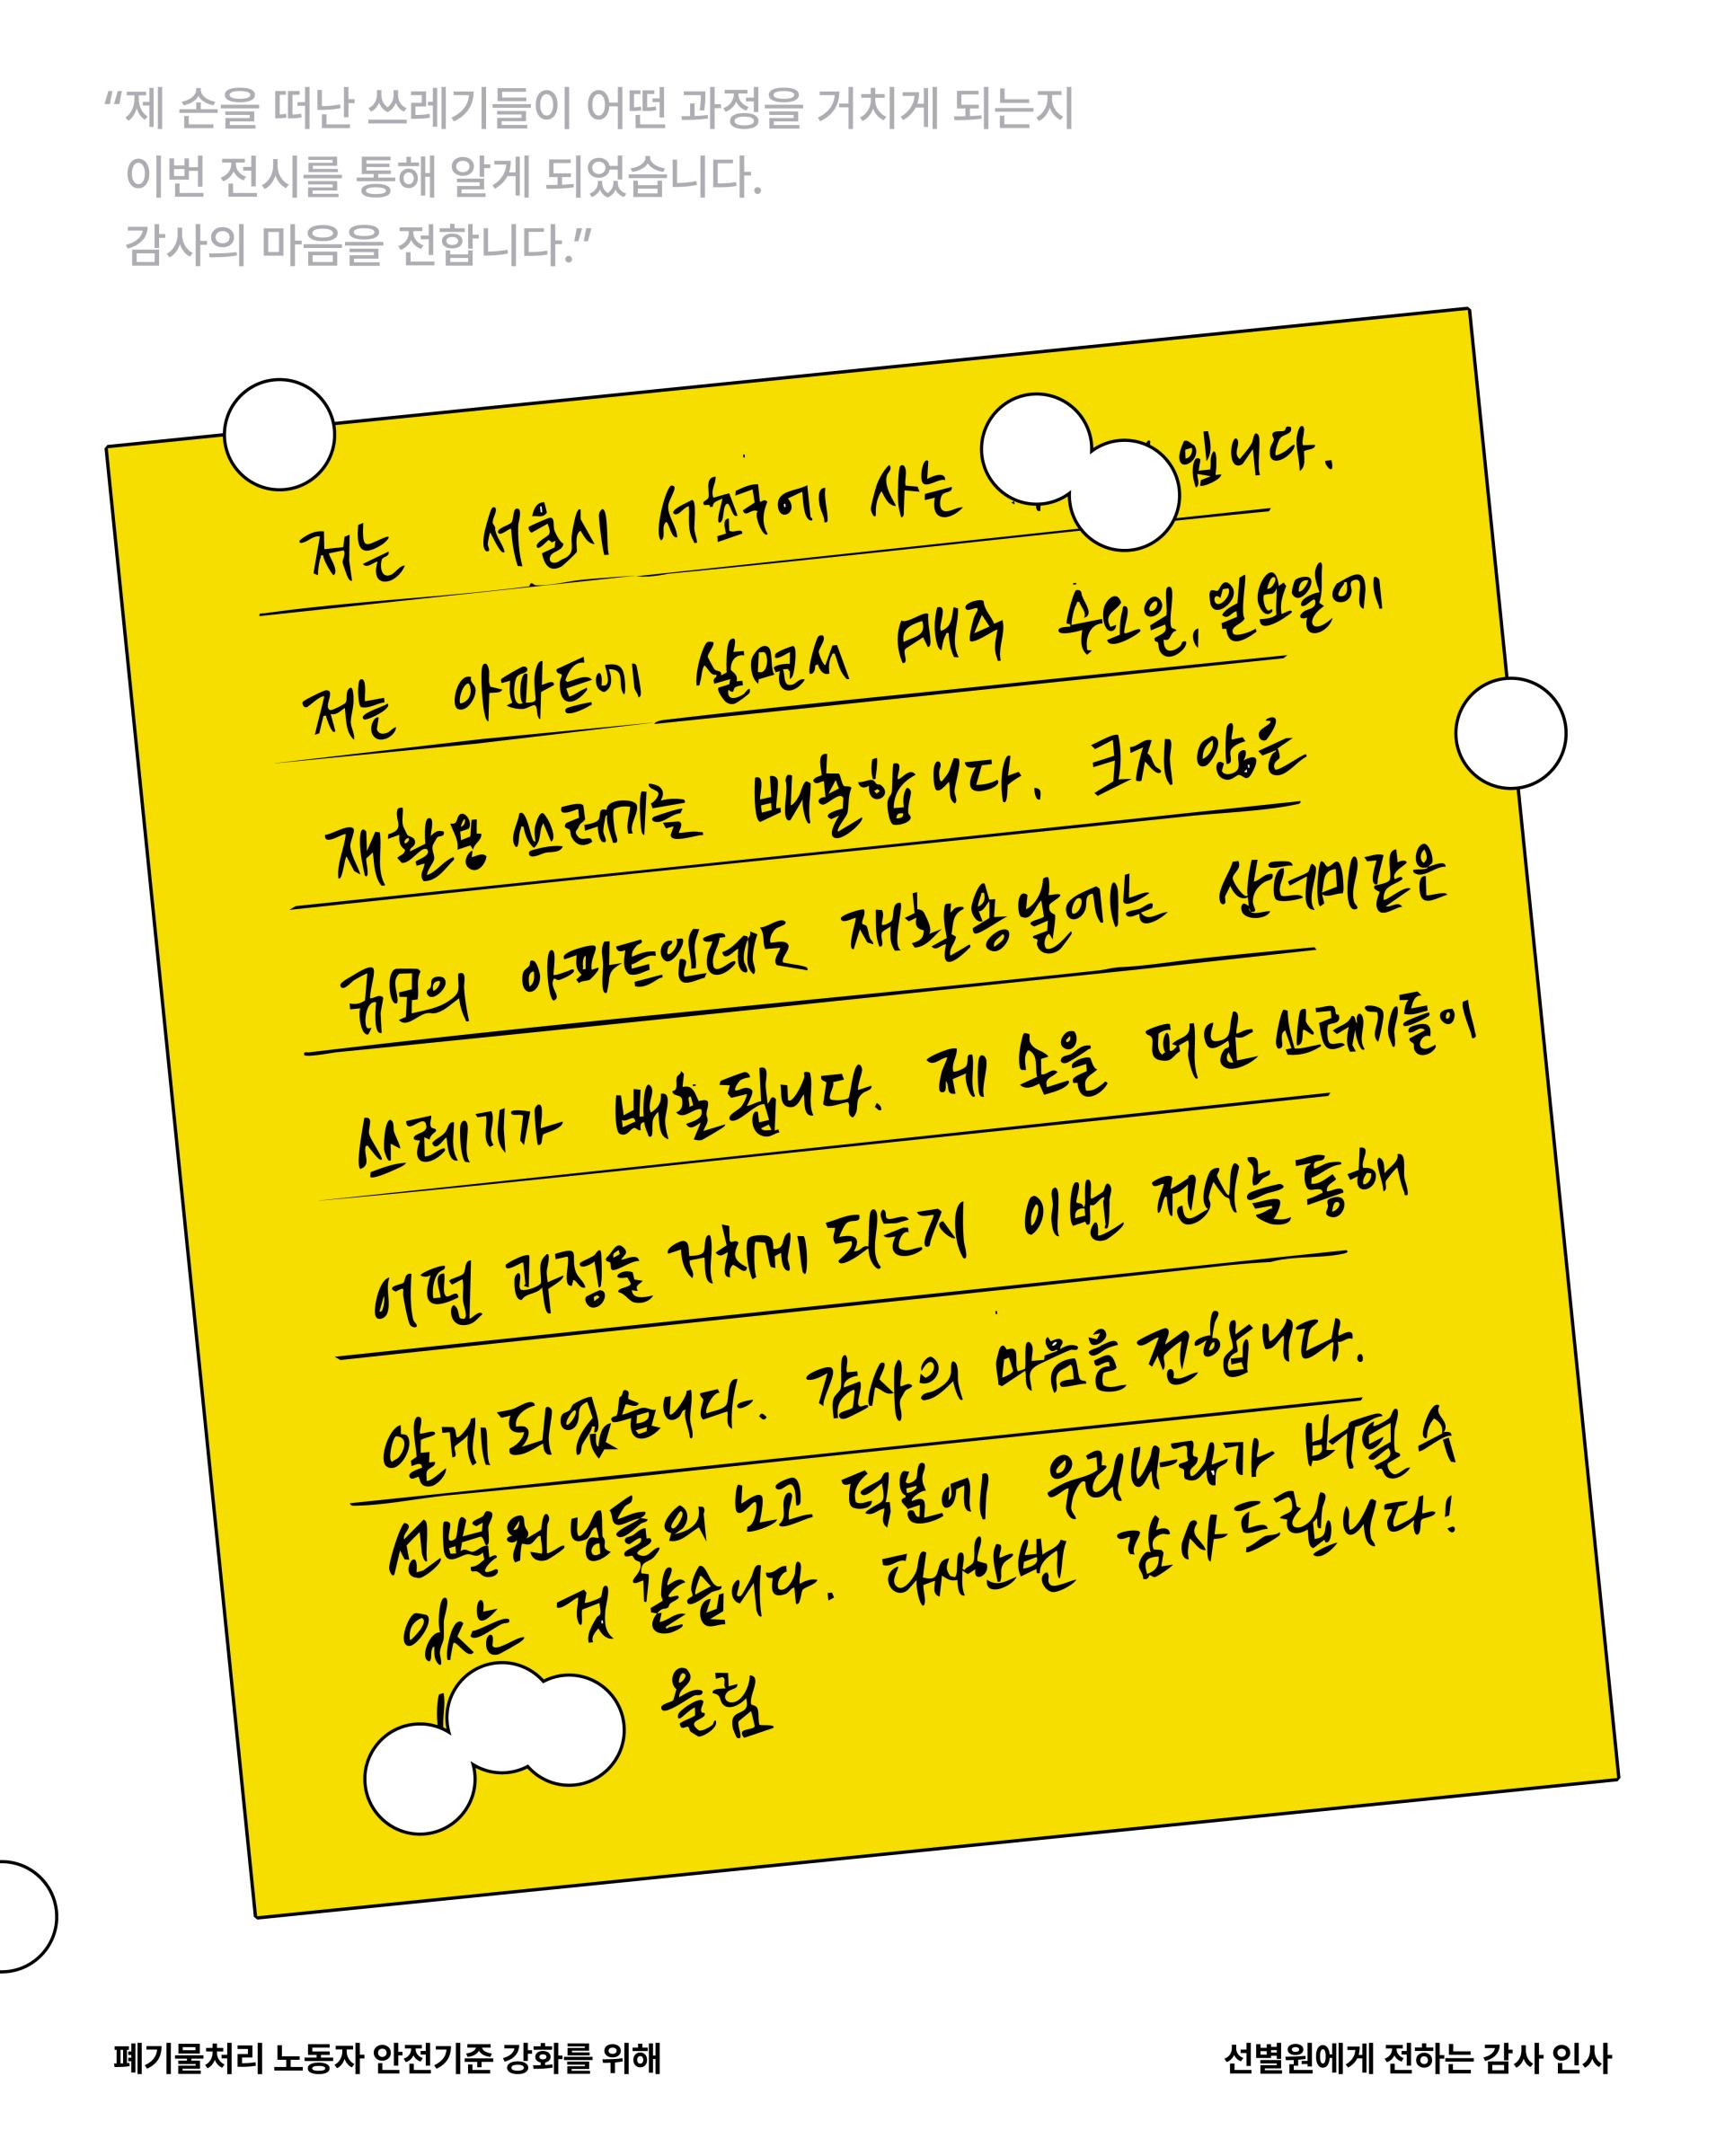 “제 손을 떠난 쓰레기들이 어떤 과정을 거치게 되는지
이번 전시를 통해 알게 되었습니다.
감사의 마음을 전합니다.”
저는 서울시 성북구에 사는
저는 아파트에 살면서 매주 수요일, 토요일에
재활용 쓰레기를 배출합니다. 크지 않은
규모의 아파트인데도 재활용 날에는 산더미같은
쓰레기가 배출됩니다. 제 손을 떠난 쓰레기들이
어떤 과정을 거치게 되는지 이번 전시를 통해
알게 되었습니다. 감사의 마음을 전합니다.
선별원님들의 노고 덕분에 우리나라가 버틸 수
있는 것 같습니다. 다시한번 감사드립니다!
올림
폐기물처리 노동자 안전기준 강화를 위해
선별원에게 전하는 감사 인사